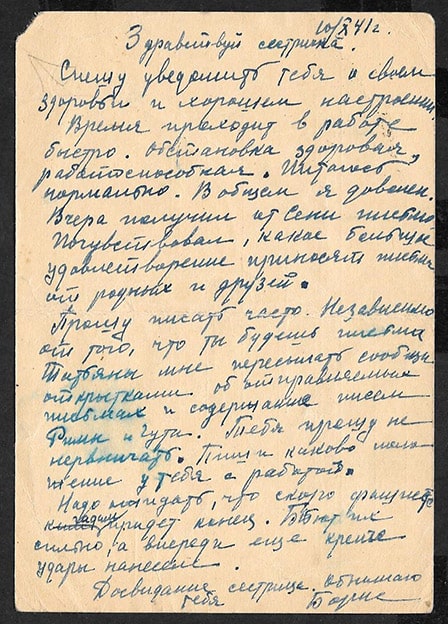 10/X 41 г.
Здравствуй сестричка.
Спешу уведомить тебя о своем
здоровьи и хорошем настроении
Время проходит в работе
быстро. Обстановка здоровая,
работоспособная. Питаюсь
нормально. В общем я доволен.
Вчера получил от Сени письмо
Почувствовал, какое большое
удовлетворение приносят письма
от родных и друзей.
Прошу писать часто. Независимо
от того, что ты будешь письма
Татьяны мне пересылать сообщи
открытками об отправляемых
письмах и содержание писем
Риты и Гути. Тебя прошу не
нервничать. Пиши каково поло
жение у тебя с работой.
Надо ожидать, что скоро фашистс
гадине придет конец. Бьют их
сильно, а впереди еще крепче
удары нанесение.
Досвидание сестрица. обнимаю
тебя Борис